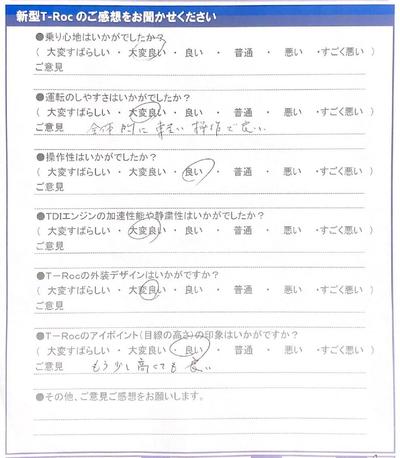 新型T-Roc のご感想をお聞かせください
●乗り心地はいかがでしたか？
( 大変すばらしい ・ 大変良い ・ 良い ・ 普通 ・ 悪い ・すごく悪い )
ご意見
●運転のしやすさはいかがでしたか？
( 大変すばらしい ・ 大変良い ・ 良い ・ 普通 ・ 悪い ・すごく悪い )
ご意見 全体的に軽い操作で良い。
●操作性はいかがでしたか？
( 大変すばらしい ・ 大変良い ・ 良い ・ 普通 ・ 悪い ・すごく悪い )
ご意見
●TDIエンジンの加速性能や静粛性はいかがでしたか？
( 大変すばらしい ・ 大変良い ・ 良い ・ 普通 ・ 悪い ・すごく悪い )
ご意見
●T－Rocの外装デザインはいかがですか？
( 大変すばらしい ・ 大変良い ・ 良い ・ 普通 ・ 悪い ・すごく悪い )
ご意見
●T－Rocのアイポイント(目線の高さ)の印象はいかがですか？
( 大変すばらしい ・ 大変良い ・ 良い ・ 普通 ・ 悪い ・すごく悪い )
ご意見 もう少し高くても良い
●その他、ご意見ご感想をお願いします。